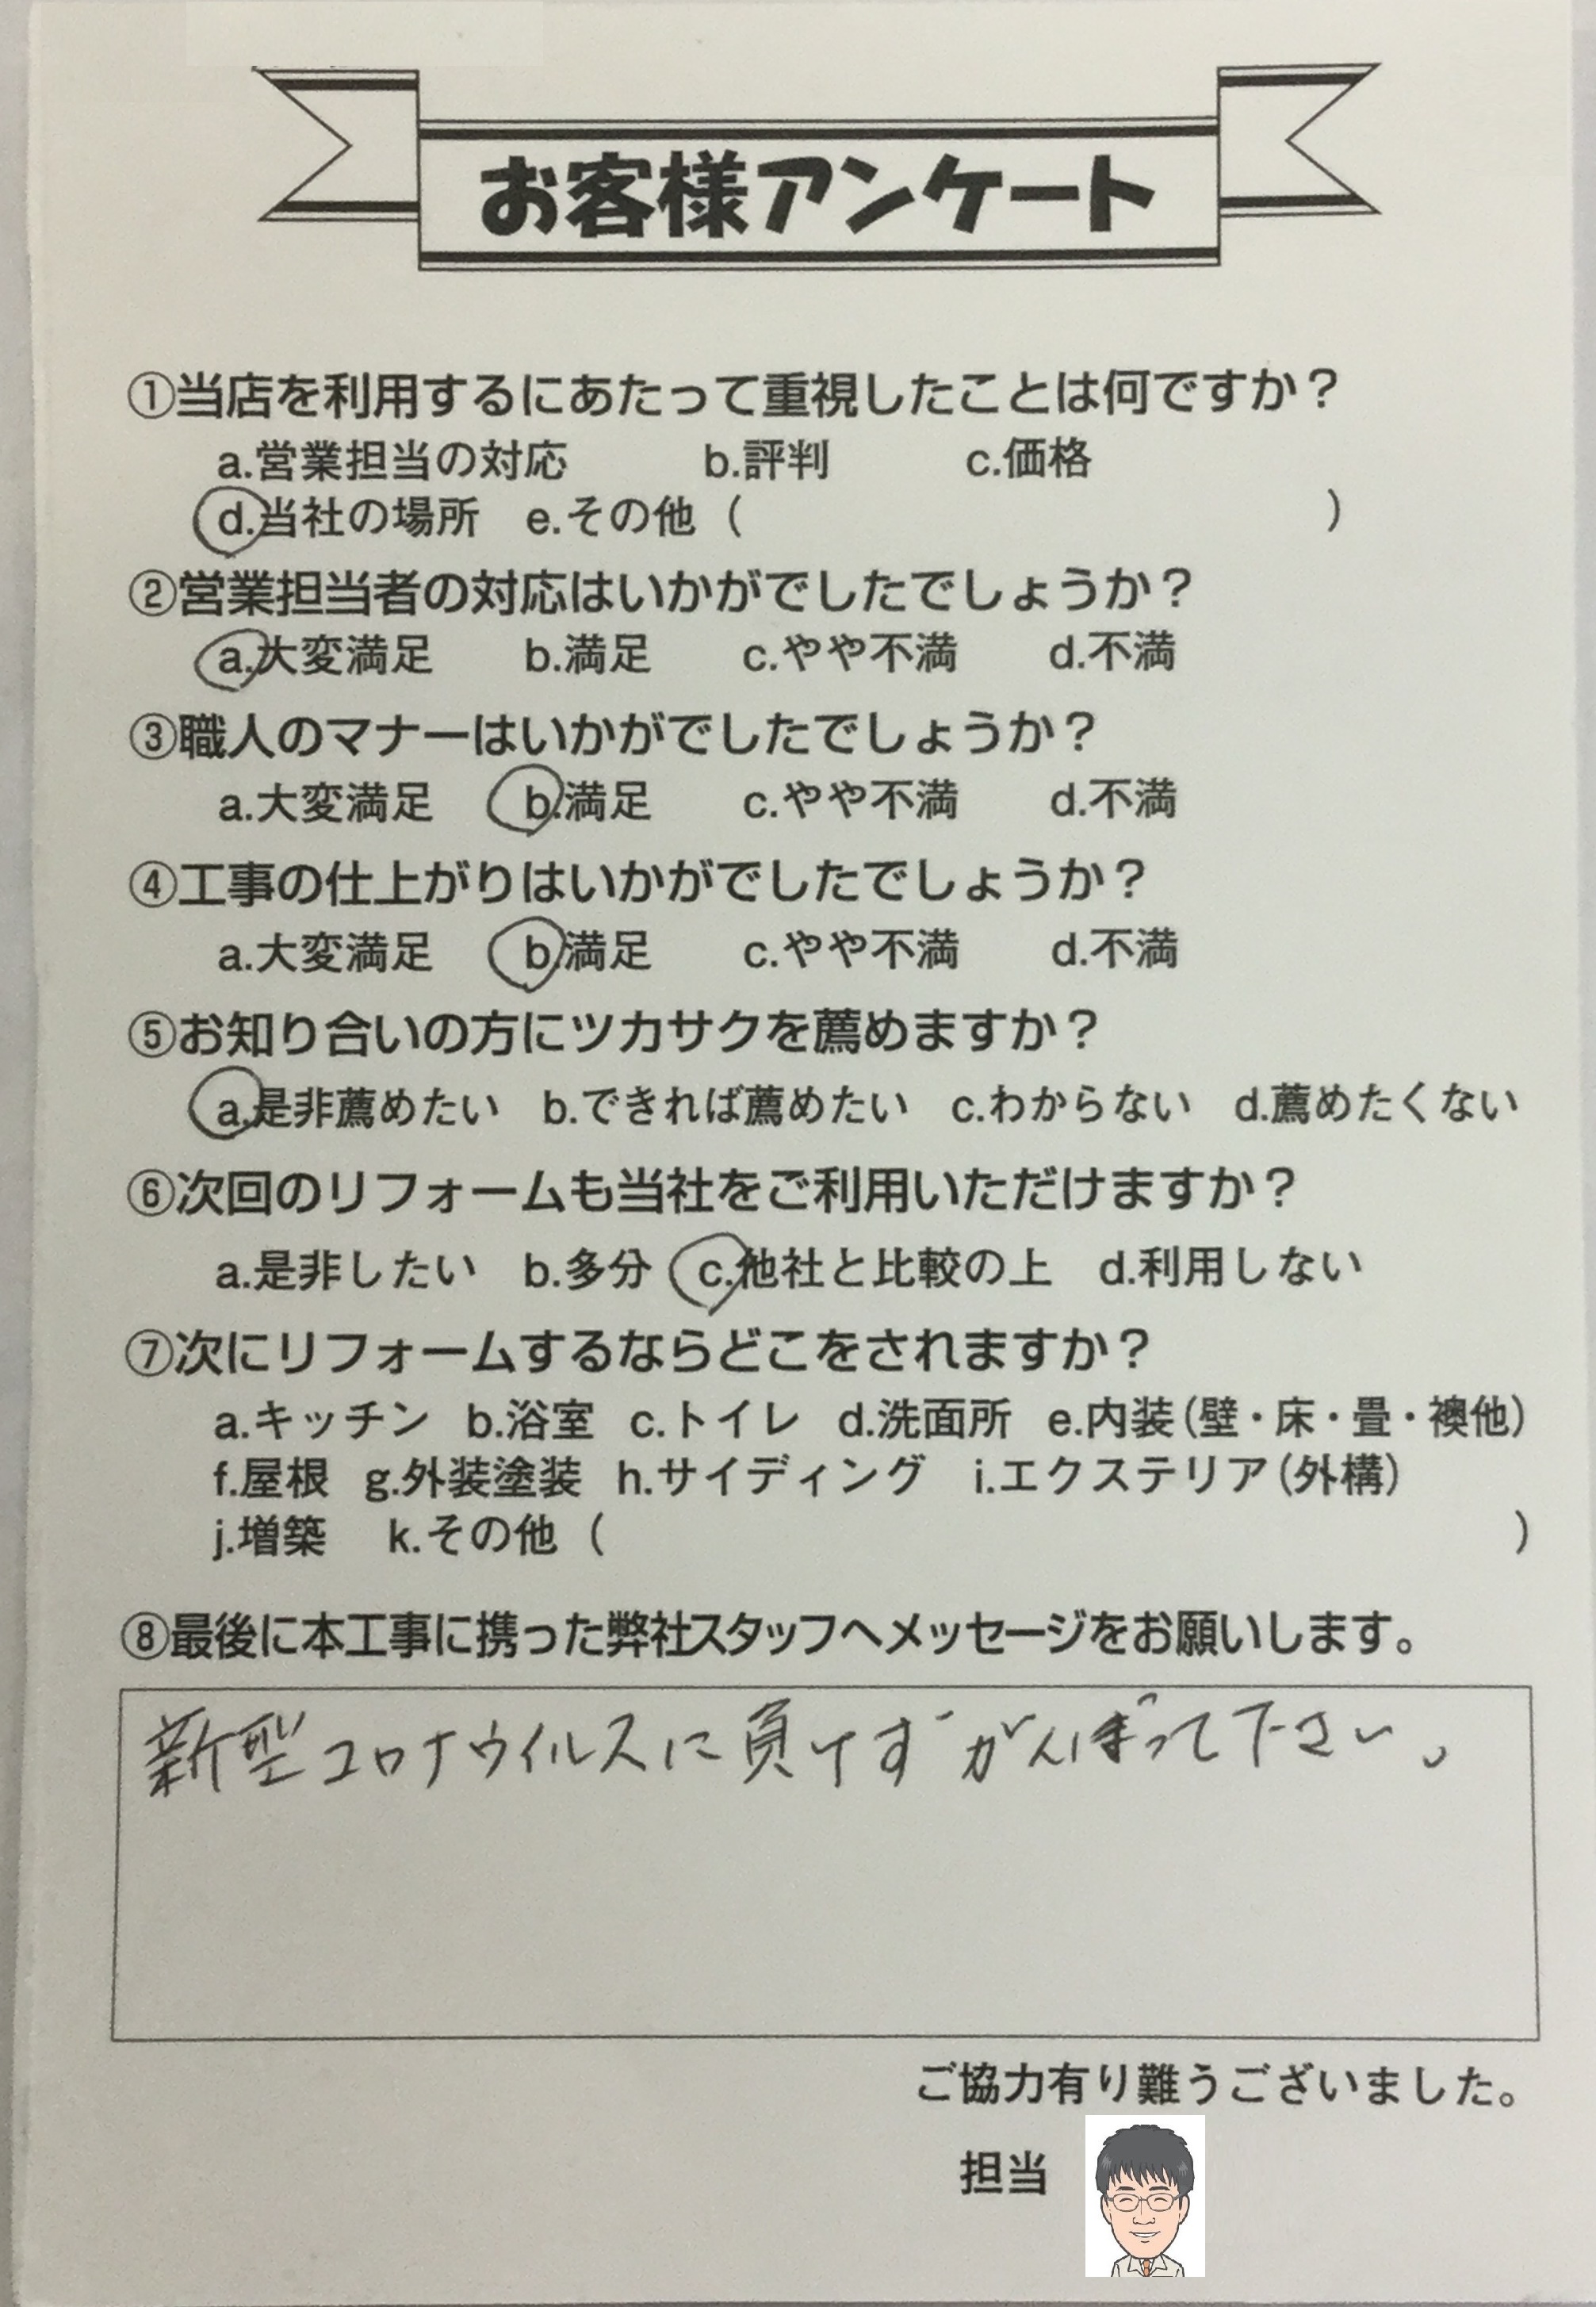 お客様アンケート
①当店を利用するにあたって重視したことは何ですか？
a.営業担当の対応 b.評判 c.価格
d.当社の場所 e.その他（ ）
②営業担当者の対応はいかがでしたでしょうか？
a.大変満足 b.満足 c.やや不満 d.不満
③職人のマナーはいかがでしたでしょうか？
a.大変満足 b.満足 c.やや不満 d.不満
④工事の仕上がりはいかがでしたでしょうか？
a.大変満足 b.満足 c.やや不満 d.不満
⑤お知り合いの方にツカサクを薦めますか？
a.是非薦めたい b.できれば薦めたい c.わからない d.薦めたくない
⑥次回のリフォームも当社をご利用いただけますか？
a.是非したい b.多分 c.他社と比較の上 d.利用しない
⑦次にリフォームするならどこをされますか？
a.キッチン b.浴室 c.トイレ d.洗面所 e.内装（壁・床・畳・襖他）
f.屋根 g.外装塗装 h.サイディング i.エクステリア（外構）
j.増築 k.その他（ ）
⑧最後に本工事に携った弊社スタッフへメッセージをお願いします。
新型コロナウイルスに負けずがんばって下さい。
ご協力有り難うございました。
担当